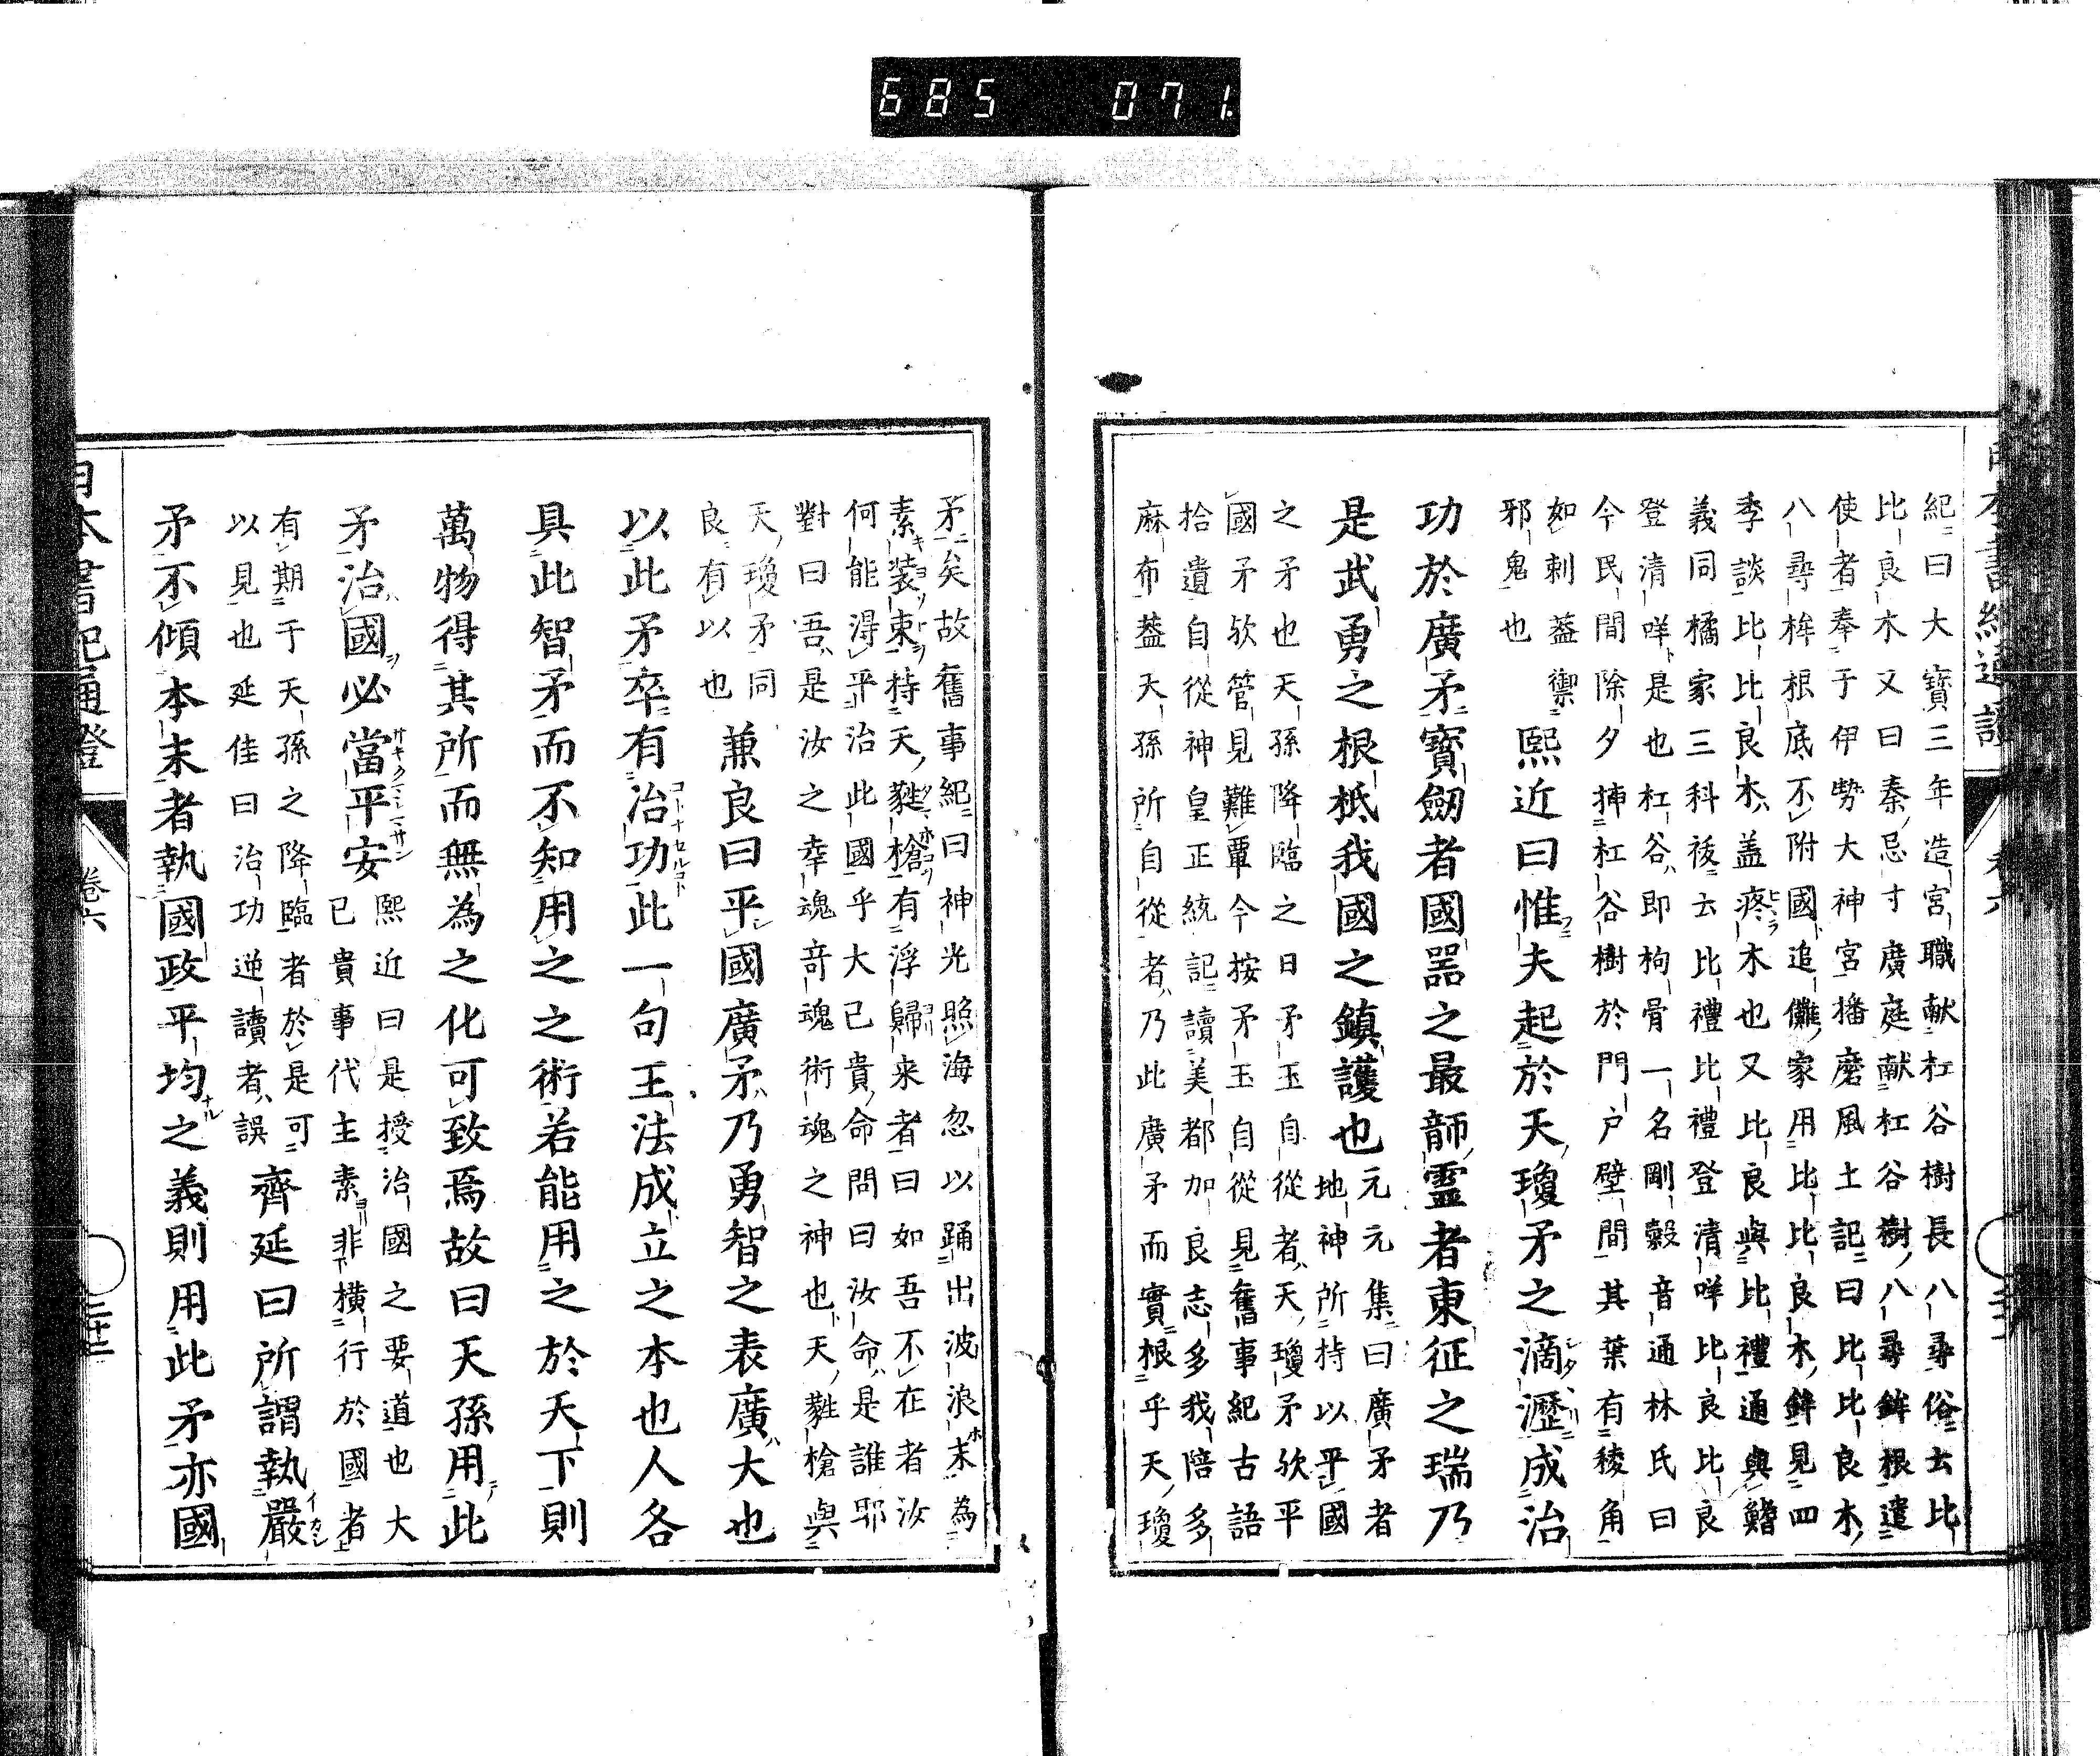 685 071.
紀曰大寶三年造宮職献杠谷樹長八尋俗云比
比良木又曰秦忌寸廣庭献杠谷樹八尋鉾根遣
使者奉于伊勢大神宮播磨風土記曰比比良木
八尋桙根底不附國追儺家用比比良木鉾見四
季談比比良木盖疼木也又比良與比禮通與鰭
義同橘家三科祓云比禮比禮登清咩比良比良
登清咩是也杠谷即枸骨一名剛榖音通林氏曰
今民間除夕挿杠谷樹於門戸壁間其葉有稜角
如刺葢禦
邪鬼也
熙近曰惟夫起於天瓊矛之滴瀝成治
功於廣矛寳劔者國噐之最韴靈者東征之瑞乃
是武勇之根柢我國之鎮護也
元元集曰廣矛者
地神所持以平國
之矛也天孫降臨之日矛玉自從者天瓊矛欤平
國矛欤管見難覃今按矛玉自從見奮事紀古語
拾遺自從神皇正統記讀美都加良志多我陪多
麻布葢天孫所自從者乃此廣矛而實根乎天瓊
矛矣故奮事紀曰神光照海忽以踊出波浪末為
素装束持天蕤槍有浮歸来者曰如吾不在者汝
何能得平治此國乎大己貴命問曰汝命是誰耶
對曰吾是汝之幸魂竒魂術魂之神也天蕤槍與
天瓊矛同
良有以也
兼良曰平國廣矛乃勇智之表廣大也
以此矛卒有治功此一句王法成立之本也人各
具此智矛而不知用之之術若能用之於天下則
萬物得其所而無為之化可致焉故曰天孫用此
矛治國必當平安
熙近曰是授治國之要道也大
已貴事代主素非横行於國者
有期于天孫之降臨者於是可
以見也延佳曰治功逆讀者誤
齊延曰所謂執嚴
矛不傾本末者執國政平均之義則用此矛亦國
日本書紀通證 卷六